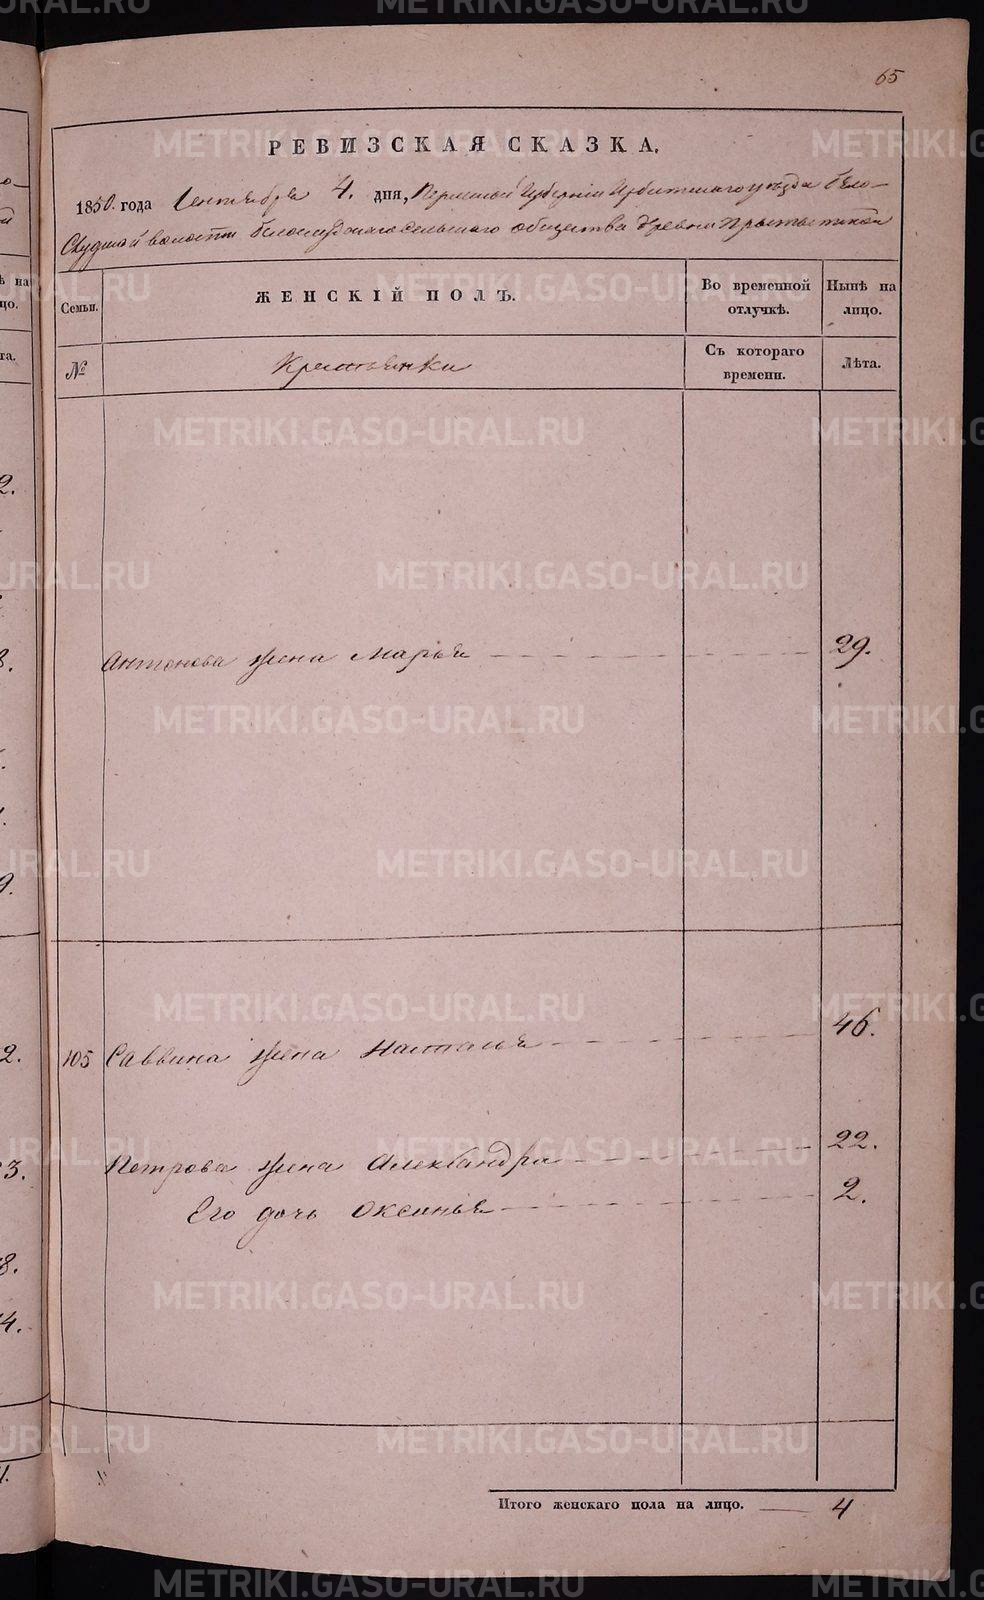 65
РЕВИЗСКАЯ СКАЗКА.
1850. года Сентября 4. дня, Пермской Губернiи Ирбитскаго уѣзда Бѣло-
Слудской волости Белослудскаго сельскаго общества деревни
Семьи.
ЖЕНСКIЙ ПОЛЪ.
Во временной отлучкѣ.
Нынѣ на лицо.
№
Крестьянки
Съ котораго времени.
Лѣта.
Антонова жена Марья 29.
105 Саввина жена Наталья 46.
Петрова жена Александра 22.
Его дочь Оксинья 2.
Итого женскаго пола на лицо. 4
METRIKI.GASO-URAL.RU